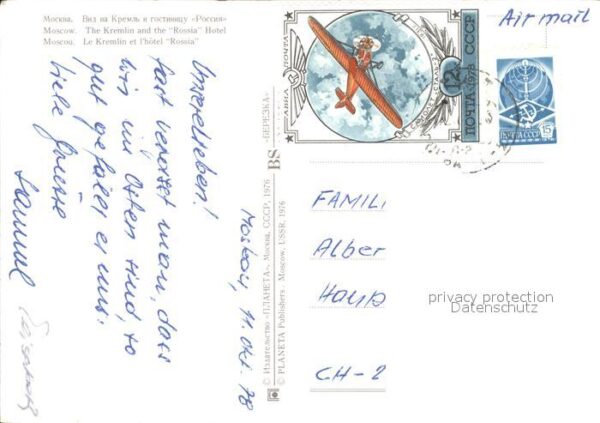 Москва. Вид на Кремль и гостиницу «Россия»
Moscow. The Kremlin and the "Rossia" Hotel
Moscou. Le Kremlin et l'hôtel "Rossia"
Moskau, 11. Okt. 78
Ihr Lieben!
fast vergisst man, dass
wir im Osten sind, so
gut gefällt es uns.
Liebe Grüsse
Samuel
© Издательство «ПЛАНЕТА». Москва, СССР, 1976
© PLANETA Publishers. Moscow, USSR, 1976
BS «БЕРЕЗКА»
АВИА ПОЧТА
12к
ПОЧТА·1978 СССР
Air mail
ПОЧТА СССР 15
FAMILI
Alber
Haup
CH-2
privacy protection
Datenschutz